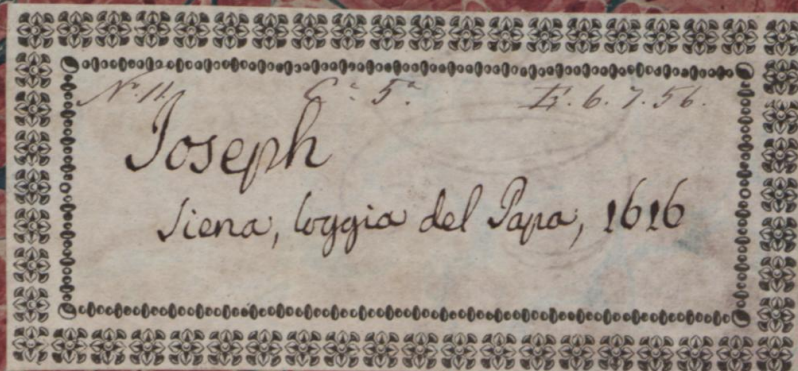 Nº. 14. Cª. 5ª. E. 6. 7. 56.
Joseph
Siena, loggia del Papa, 1616